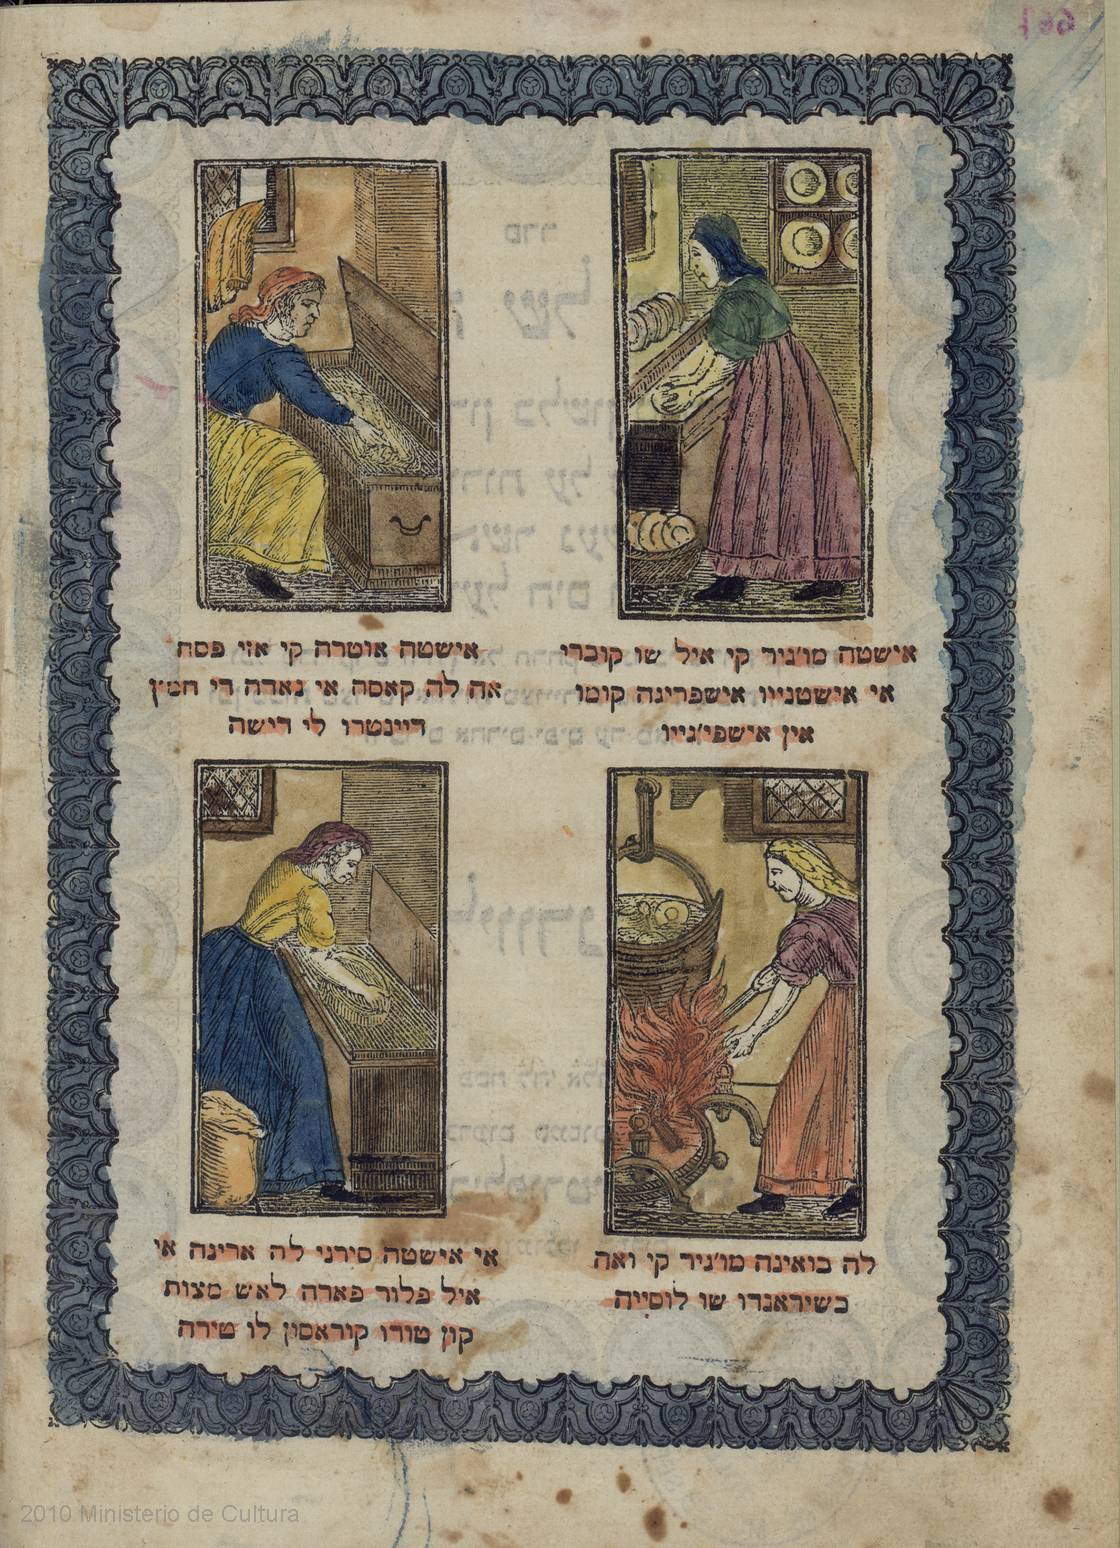 אישטה מוז׳יר קי איל שו קוברי
אי אישטנייו אישפריגה קומו
אין אישפיז׳ייו
אישטה אוטרה קי אזי פסח
אה לה קאסה אי נאדה די חמץ
דיינטרו לי דישה
לה בואינה מוז׳יר קי ואה
כשיראנדו שו לוסייה
אי אישטה סירני לה ארינה אי
איל פלור פארה לאש מצות
קון טודו קוראסין לו טירה
2010 Ministerio de Cultura